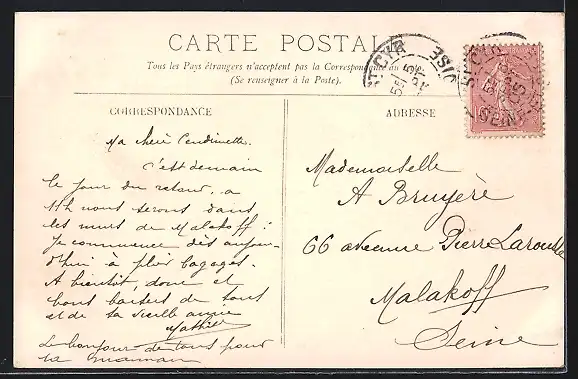 CARTE POSTALE
Tous les Pays étrangers n'acceptent pas la Correspondance au
(Se renseigner à la Poste).
CORRESPONDANCE
ADRESSE
ST CYR
Ma chère
c'est demain
le jour du retour, a
11h nous serons dans
les murs de Malakoff !
Je commence dès aujour-
d'hui à plier bagages.
A bientôt donc et
bons baisers de tous
et de ta vieille amie
Mathilde
Le bonjour de tous pour
ta maman
Mademoiselle
A Bruyère
66 avenue Pierre Larousse
Malakoff
Seine